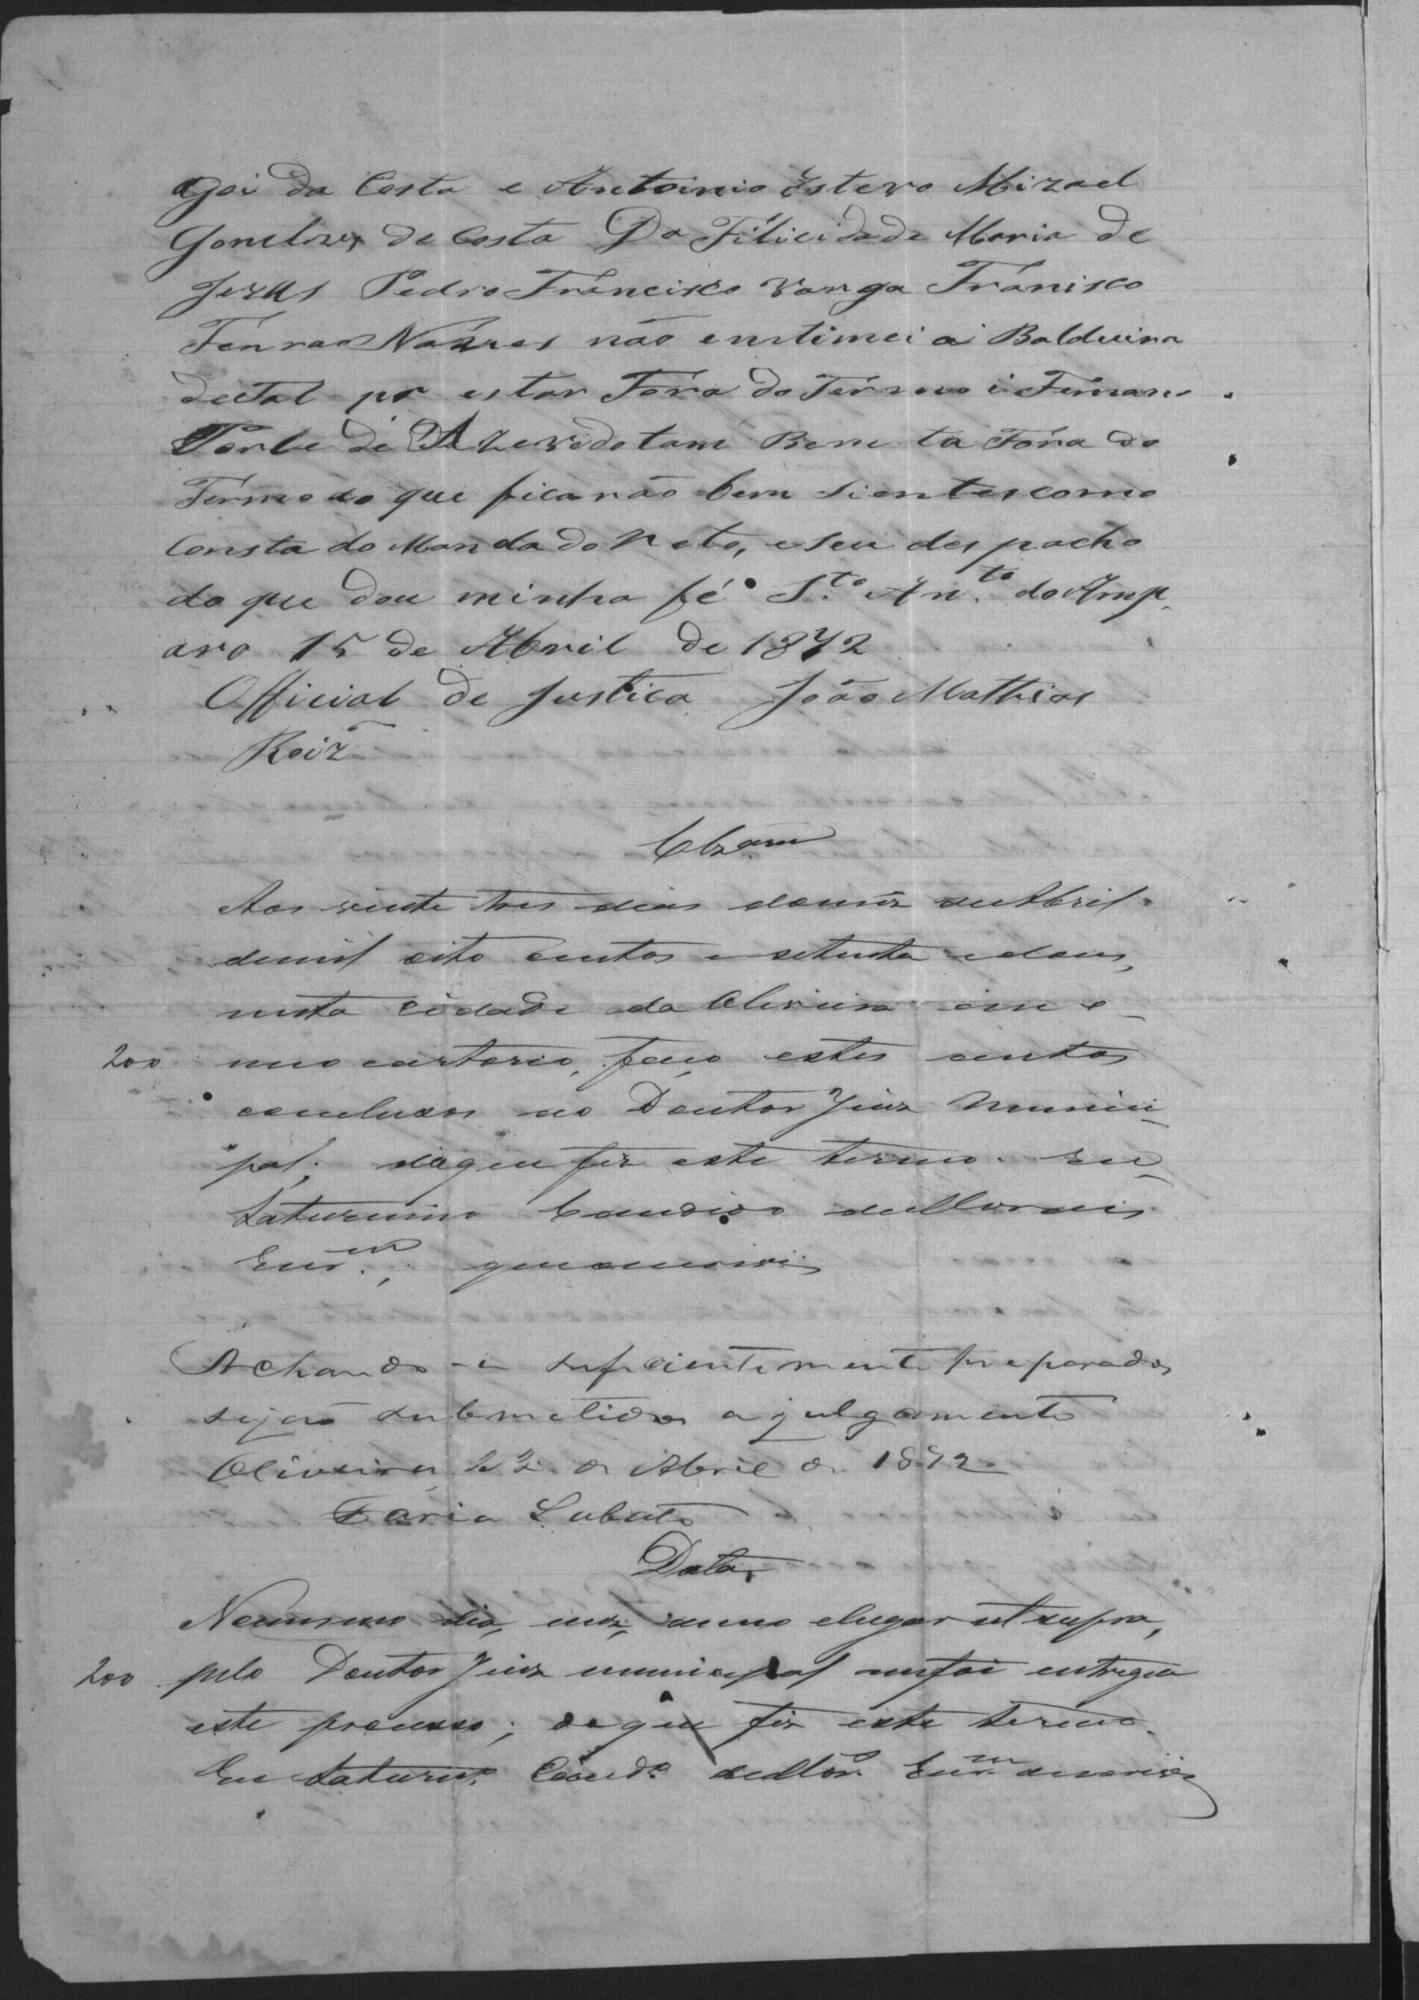 da Costa e Antoinio Estevo Mizael
Gonclves da Costa Da Filicidade Maria de
Jezus Pedro Francisco Franisco
não entimei a Balduina
de tal pr estar Fóra do Termo i Fernan
de Azevedo tam Bem ta Fóra do
Termo do que ficarão bem sientes como
Consta do Mandado Reto, e seu despacho
do que dou minha fé Sto. Anto. do Amp
aro 15 de Abril de 1872
Official de Justica João Mathias
Roiz
Clzam
Aos vinte tres dias do mez de Abril
de mil oito centos e setenta e dous,
nesta Cidade da Oliveira em e
200 meo cartorio, faço estes autos
concluzos ao Doutor Juiz Munici
pal; do que fiz este termo. Eu
Saturnino Candido de Moraes
Escram., que escrevi
Achando-se suficientemente preparados
sejão submetidos a julgamento
Oliveira 23 de Abril de 1872
Faria Lobato
Data
No mesmo dia, mez, anno e lugar ut supra,
200 pelo Doutor Juiz municipal me foi entregue
este processo; do que fiz este termo.
Eu Saturno. Candº. de Mors. Escram. escrevi